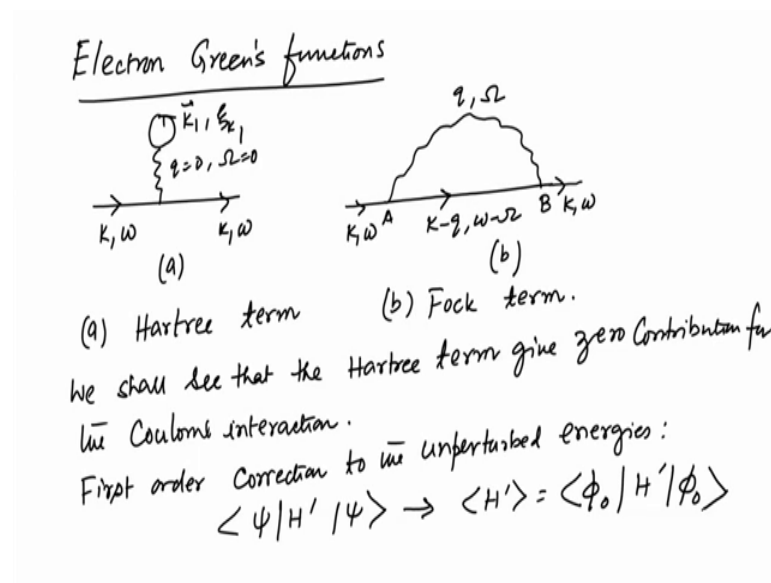 Electron Green's functions
k⃗₁, ξₖ₁
q=0, Ω=0
k, ω
k, ω
(a)
q, Ω
k, ω
A
k-q, ω-Ω
B
k, ω
(b)
(a) Hartree term
(b) Fock term.
We shall see that the Hartree term give zero Contribution for
the Coulomb interaction.
First order Correction to the unperturbed energies:
<ψ|H'|ψ> → <H'> = <ϕ₀|H'|ϕ₀>